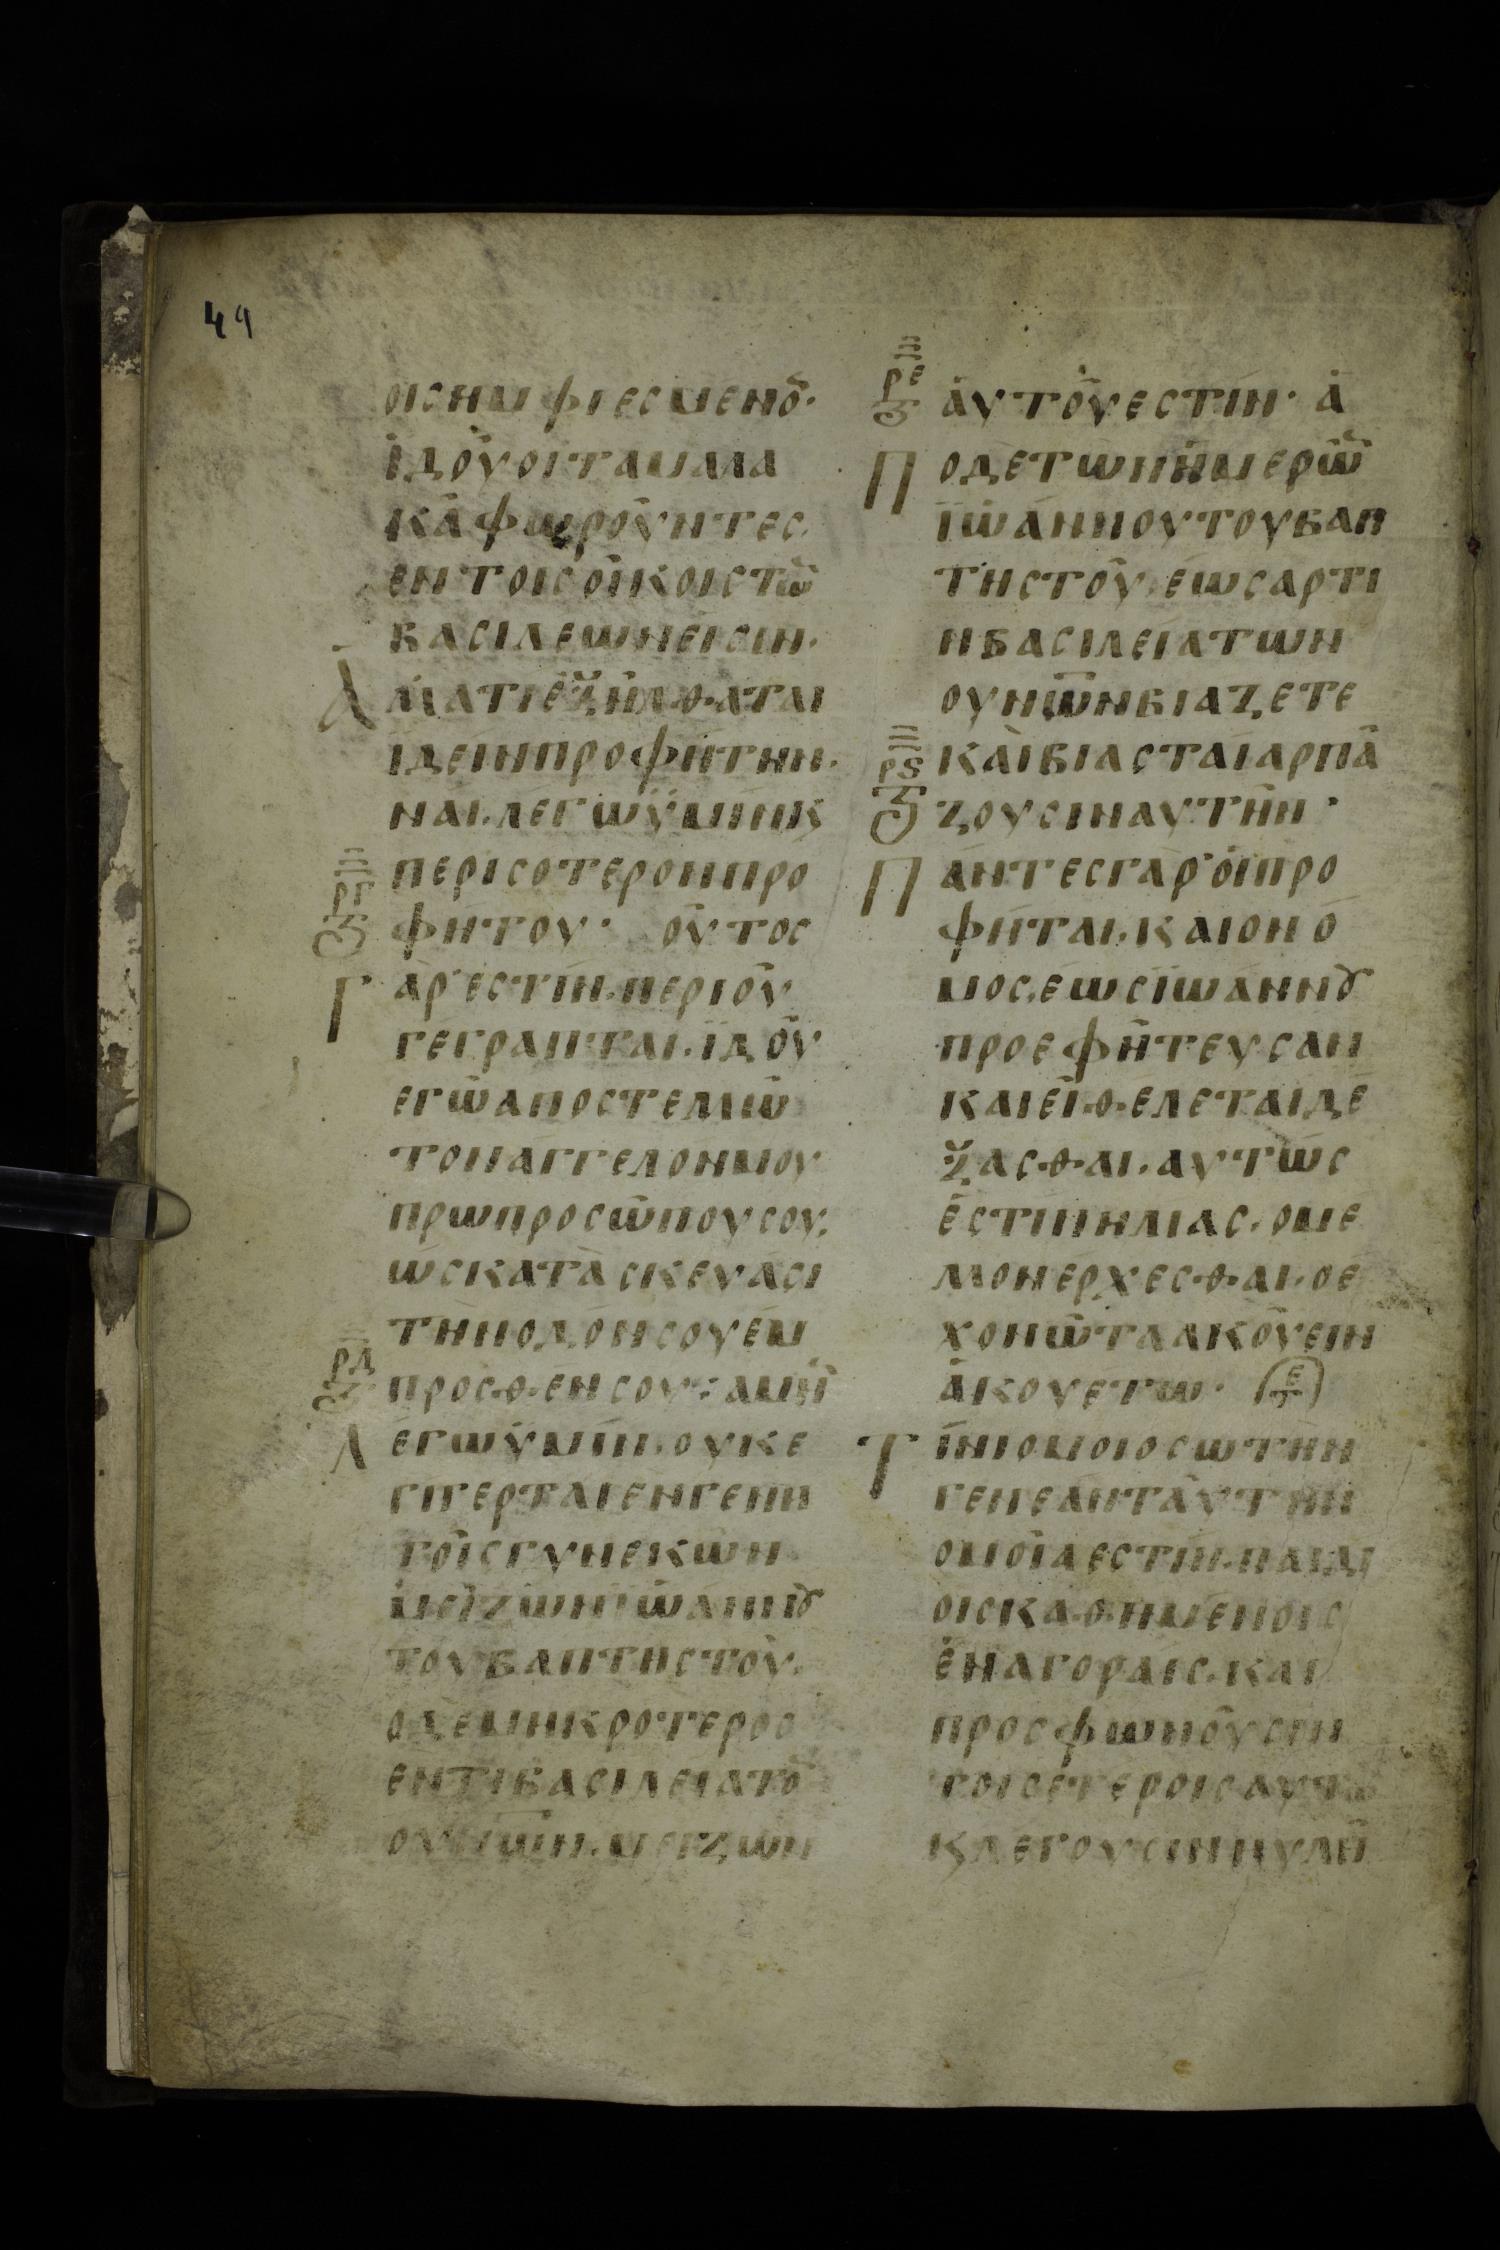 49
οισημφιεσμενȣ·
ἰδοὺοιταμαλα
κᾶφωροῦντες
εντοισοἴκοιστῶ
βασιλεωνεισιν·
Ἀ
λλατιεξηλθαται
ἰδεινπροφήτην·
ναι·λεγωϋμῖνκ
περισοτερονπρο
ργ
φήτου· οὗτος
Γ
αρεστιν·περιοῦ
γεγραπται·ϊδοῦ
εγῶαποστελλῶ
τοναγγελονμου
πρωπροσῶπουσου·
ὡσκατὰσκευάσι
τηνοδονσουέμ
ρδ
προσθενσου· αμὴ
Λ
εγωϋμῖν·ουκε
γιγερταιενγενη
τοῖσγυνεκῶν
μείζωνϊῶάννȣ
τουβαπτηστοῦ·
οδεμηκροτερος
εντιβασιλειατῶ
ουνῶν·μειζων
ρε
ἀυτοῦεστιν· ἁ
Π
οδετωνημερῶ
ϊωάννουτουβαπ
τηστοῦ·εωσαρτι
ηβασιλείατων
ουνῶνβιαζετε
ρϛ
καὶβιασταίαρπᾶ
ζουσιναυτην·
Π
άντεσγὰρὁιπρο
φῆται·καιονό
μος·εωσϊωάννȣ
προεφῆτευσαν
καιεἰθελεταιδέ
ξασθαι·αυτῶς
ἐστινηλίας·ομε
λλονέρχεσθαι·οε
χονῶταακοὕειν
ἀκουετω· ε
Τ
ἵνιομοιοσωτὴν
γενεανταὺτην
ομοῖαεστὶν·παιδι
οισκαθημένοις
ἐναγοραις·και
προσφωνοῦσιν
τοισετεροισαυτῶ
κλεγουσινηυλῆ